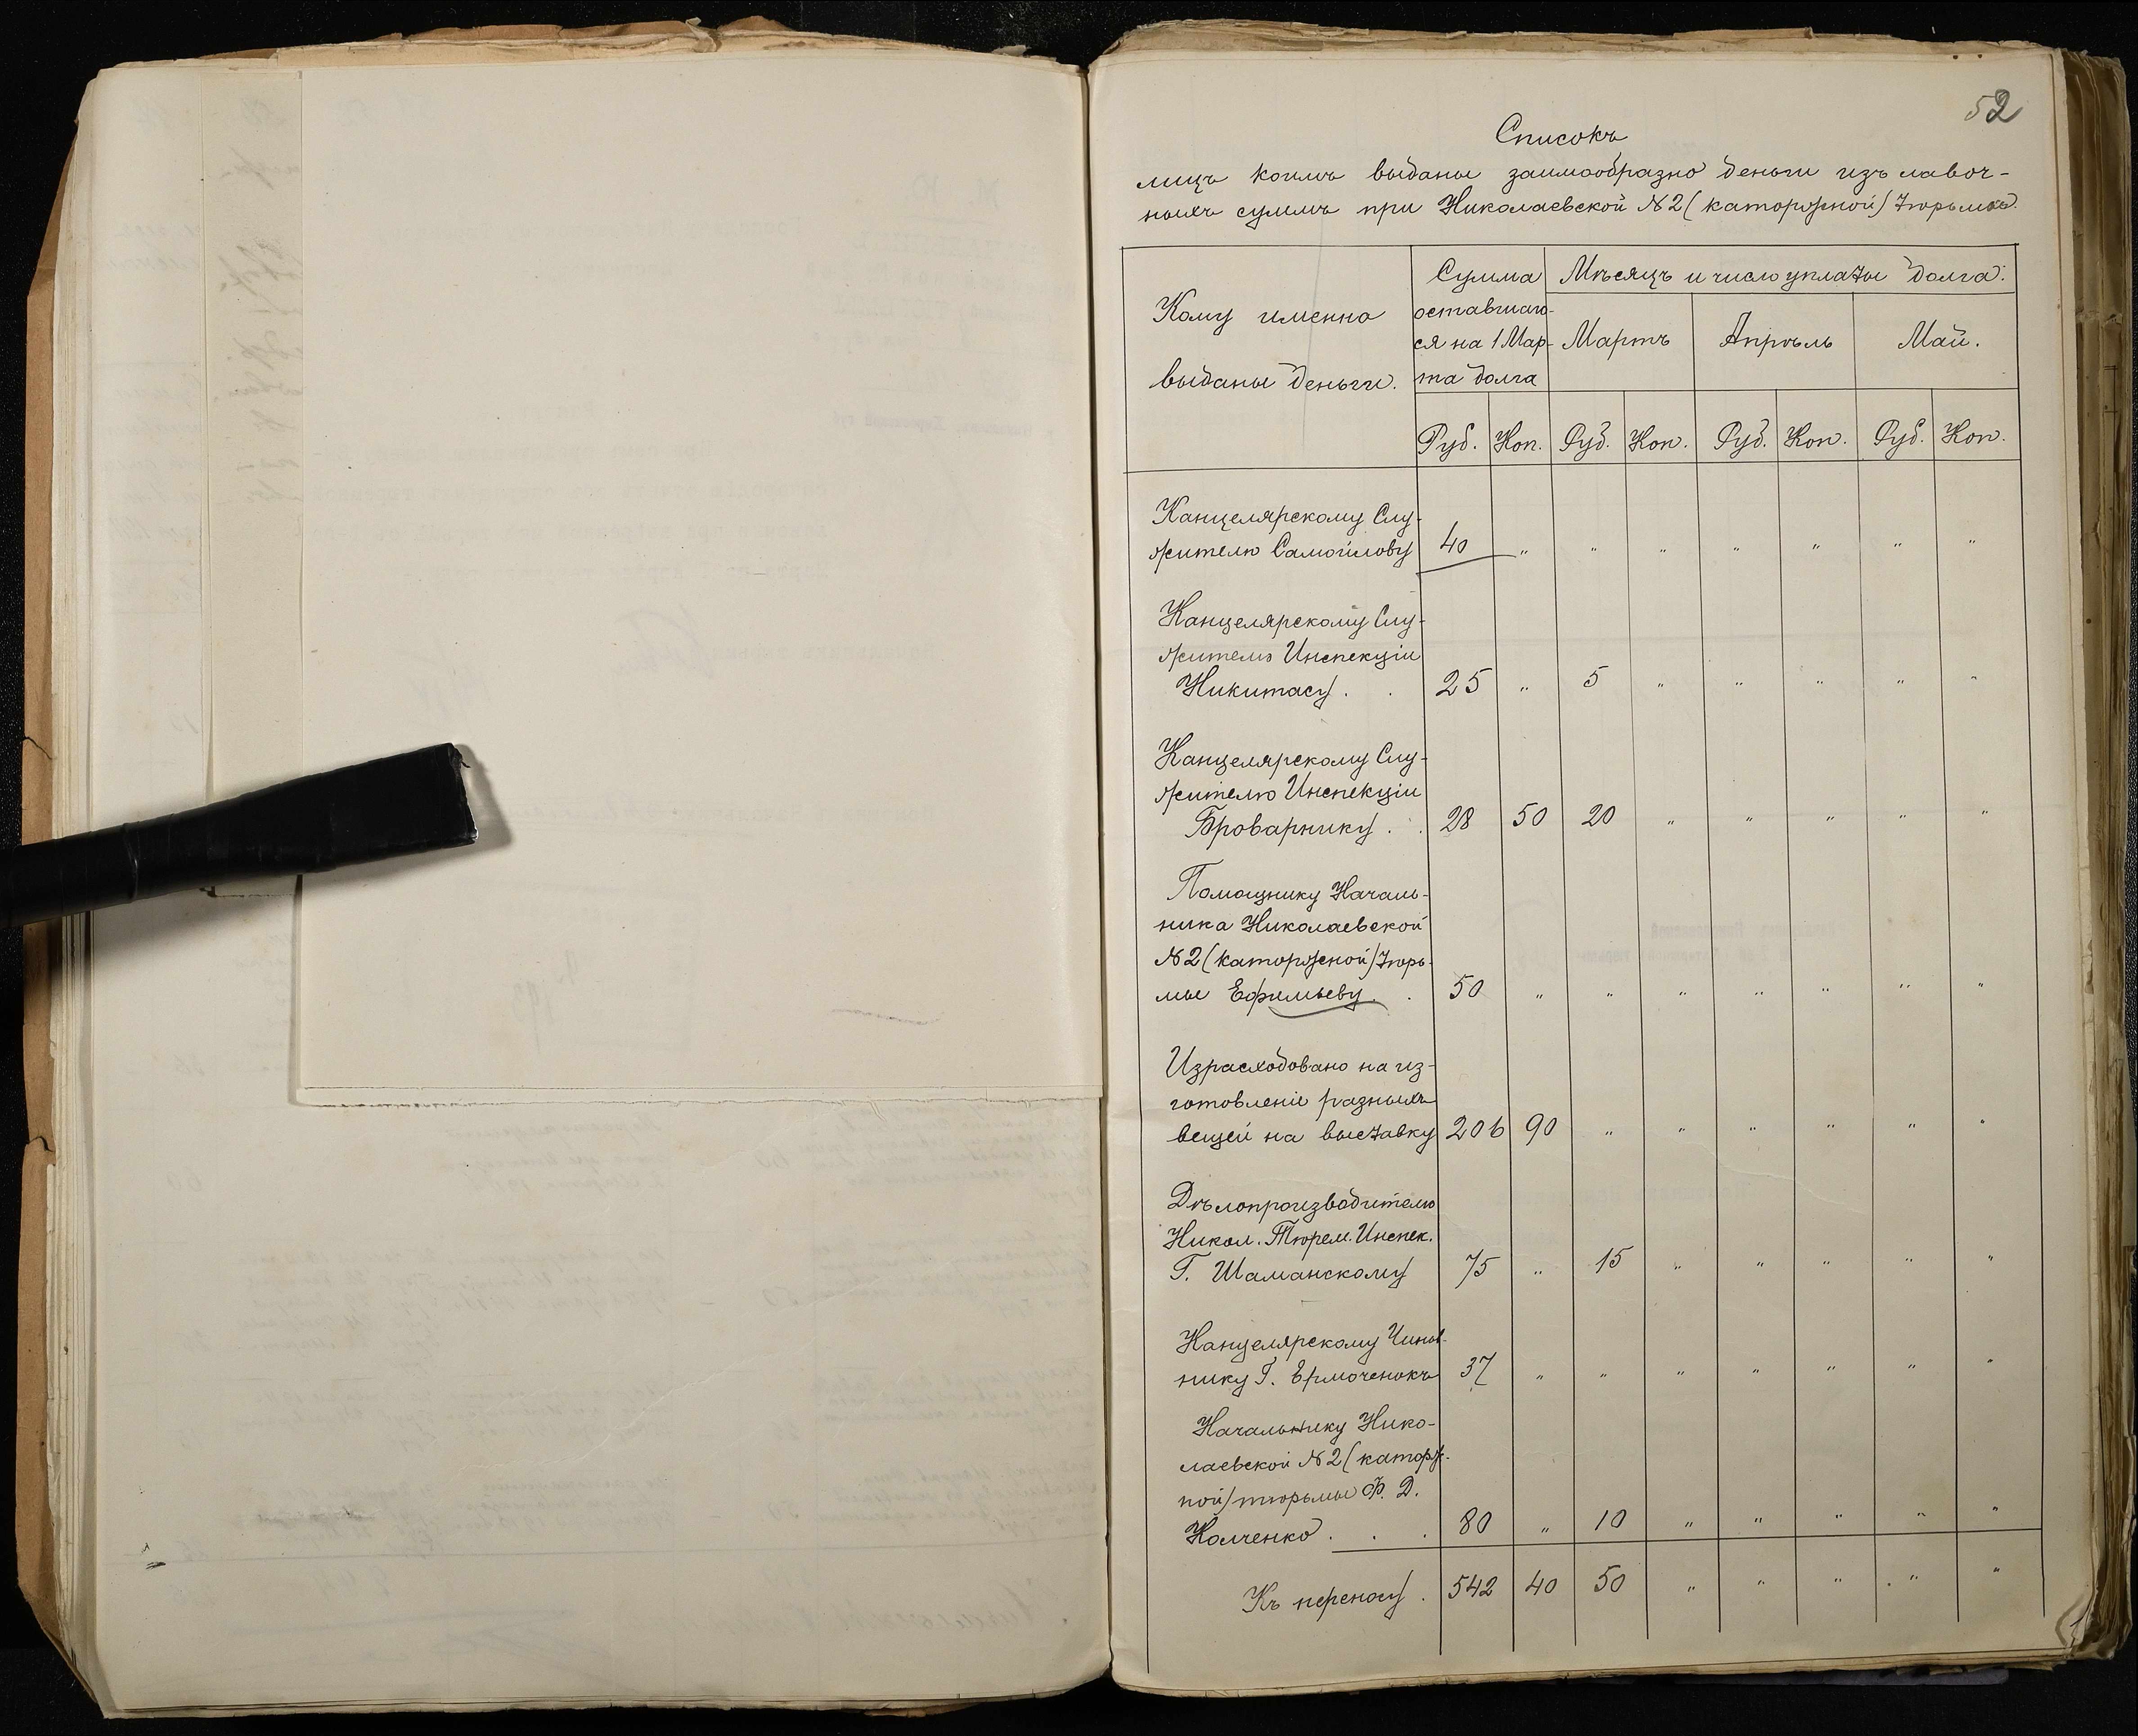 52
Списокъ
лицъ коимъ выданы заимообразно деньги изъ лавоч-
ныхъ суммъ при Николаевской №2 (каторжной) Тюрьмѣ.
Кому именно
выданы деньги.
Сумма
оставшаго-
ся на 1 Мар-
та долга
Мѣсяцъ и число уплаты долга.
Мартъ Апрѣль Май.
Руб. Коп. Руб. Коп. Руб. Коп. Руб. Коп.
Канцелярскому Слу-
жителю Самойлову 40 " " " " " " "
Канцелярскому Слу-
жителю Инспекціи
Никитасу . . 25 " 5 " " " " "
Канцелярскому Слу-
жителю Инспекціи
Броварнику . . 28 50 20 " " " " "
Помощнику Началь-
ника Николаевской
№2 (каторжной) Тюрь-
мы Ефимьеву . . 50 " " " " " " "
Израсходовано на из-
готовленіе разныхъ
вещей на выставку 206 90 " " " " " "
Дѣлопроизводителю
Никол. Тюрем. Инспек.
Г. Шаманскому 75 " 15 " " " " "
Канцелярскому Чинов-
нику Г. Ермоченокъ 37 " " " " " " "
Начальнику Нико-
лаевской №2 (каторж-
ной) тюрьмы Ф. Д.
Колченко . . . 80 " 10 " " " " "
Къ переносу . 542 40 50 " " " " "